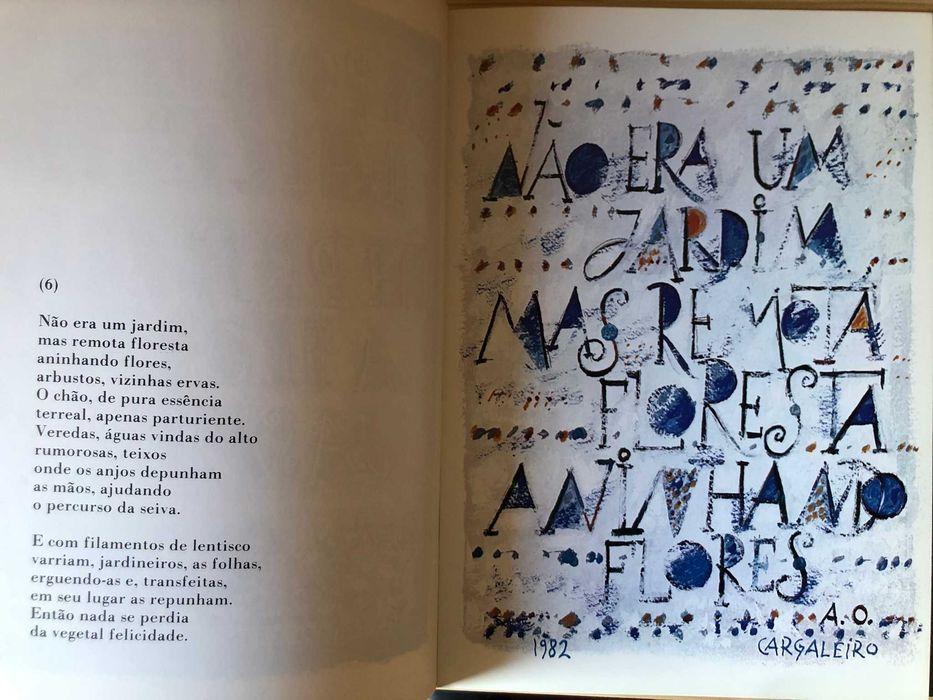 (6)
Não era um jardim,
mas remota floresta
aninhando flores,
arbustos, vizinhas ervas.
O chão, de pura essência
terreal, apenas parturiente.
Veredas, águas vindas do alto
rumorosas, teixos
onde os anjos depunham
as mãos, ajudando
o percurso da seiva.
E com filamentos de lentisco
varriam, jardineiros, as folhas,
erguendo-as e, transfeitas,
em seu lugar as repunham.
Então nada se perdia
da vegetal felicidade.
NÃO ERA UM
JARDIM
MAS REMOTA
FLORESTA
ANINHANDO
FLORES
A.O.
1982 CARGALEIRO